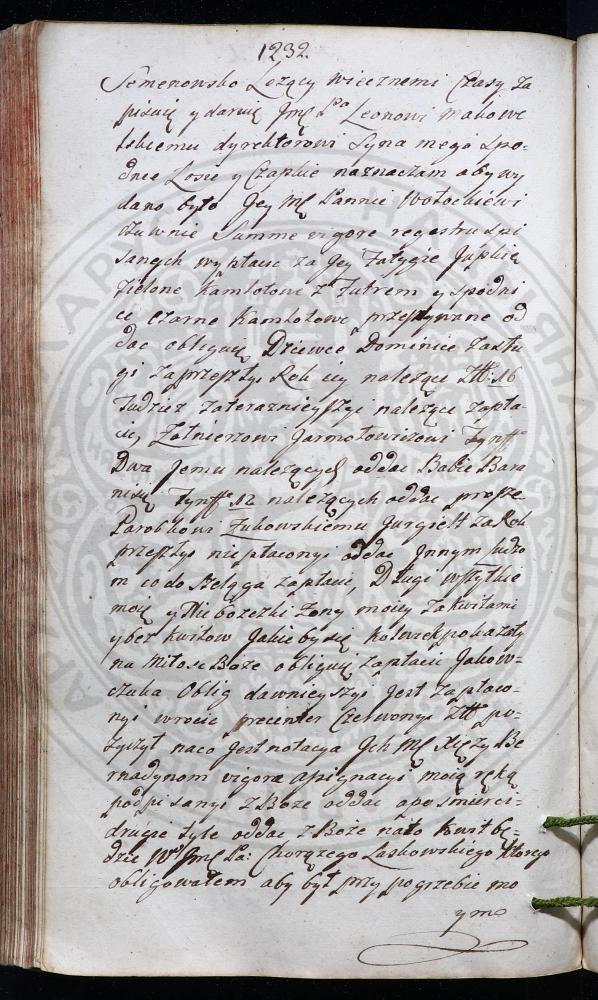 1232.
Semenowsko Leżący wiecznemi Czasy Za
pisuię y daruię Jmę Pa Leonowi Makowe
lskiemu dyrektorowi Syna mego Spo-
dnie Łosie y Czapkie naznaczam aby wy
dano było Jey Mę Pannie Wołockiewi
czuwnie Summe vigore regestru
sanych wypłacić za Jey Fatygie Jupkię
Zielone Kamlotowe z Futrem y Spodni
ce Czarne Kamlotowe przeszywane od
dac obliguię Dziewce Dominice Zasłu
gi Zaprzeszły Rok iey należące Złł: 16
Tudzież Zateraznieyszyi należące Zapła
cic, Żołnierzowi Jarmołowiczowi Tynff
Dwa Jemu należących oddac Babie Bara
nisię Tynff 12 należących oddac prosze
Parobkowi Żukowskiemu Jurgielt Za Rok
przeszłys niepłaconyi oddac Jnnym ludzo
m co do Szelęga Zapłacic, Długi wszytkie
moię y Nieboszczki Żony moiey Zakwitami
y bez kwitow Jakie by się kolwiek pokazały
na Miłosc Boże obliguię Zapłacic Jakow-
czuka Oblig dawnieyszyi Jest Zapłaco-
nyi wrocic Czerwonyi Złł po-
życzył naco Jest notacya Jch Mę Xięży Be
rnadynom vigore assignacyi moią ręką
podpisanyi Zboże oddac a po smierci-
drugie tyle oddac Zboże nato kwit bę-
dzie Wo Jmę Pa: Chorążego Laskowskiego Ktorego
obligowałem aby był przy pogrzebie mo
ym